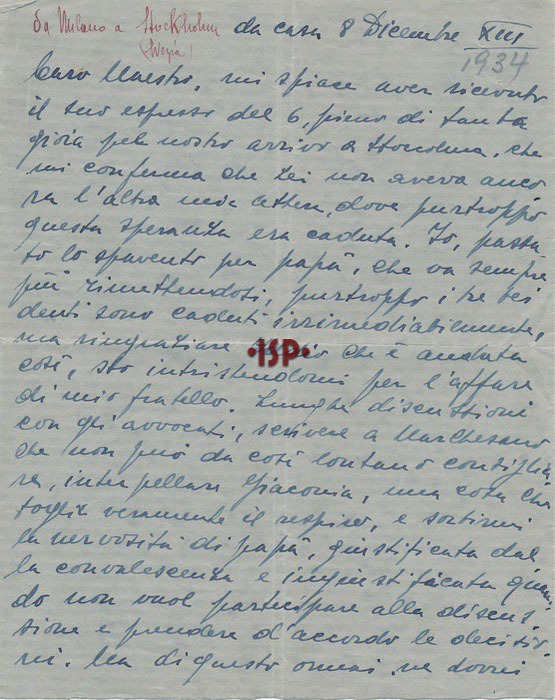 da Milano a Stockholm
(Svezia)
da casa 8 Dicembre XIII
1934
Caro Maestro, mi spiace aver ricevuto
il suo espresso del 6, pieno di tanta
gioia pel nostro arrivo a Stocolma, che
mi conferma che Lei non aveva anco
ra l'altra mia lettera, dove purtroppo
questa speranza era caduta. Io, passa
to lo spavento per papà, che va sempre
più rimettendosi, purtroppo i tre bei
denti sono caduti irrimediabilmente,
ma ringraziare che è andata
così, sto intristendomi per l'affare
di mio fratello. Lunghe discussioni
con gli avvocati, scrivere a Marchesano
che non può da così lontano consiglia
re, interpellare Giaconia, una cosa che
toglie veramente il respiro, e sortirmi
la nervosità di papà, giustificata dal
la convalescenza e ingiustificata quan
do non vuol partecipare alla discus
sione e prendere d'accordo le decisio
ni. Ma di questo ormai ne dovrei
ISP